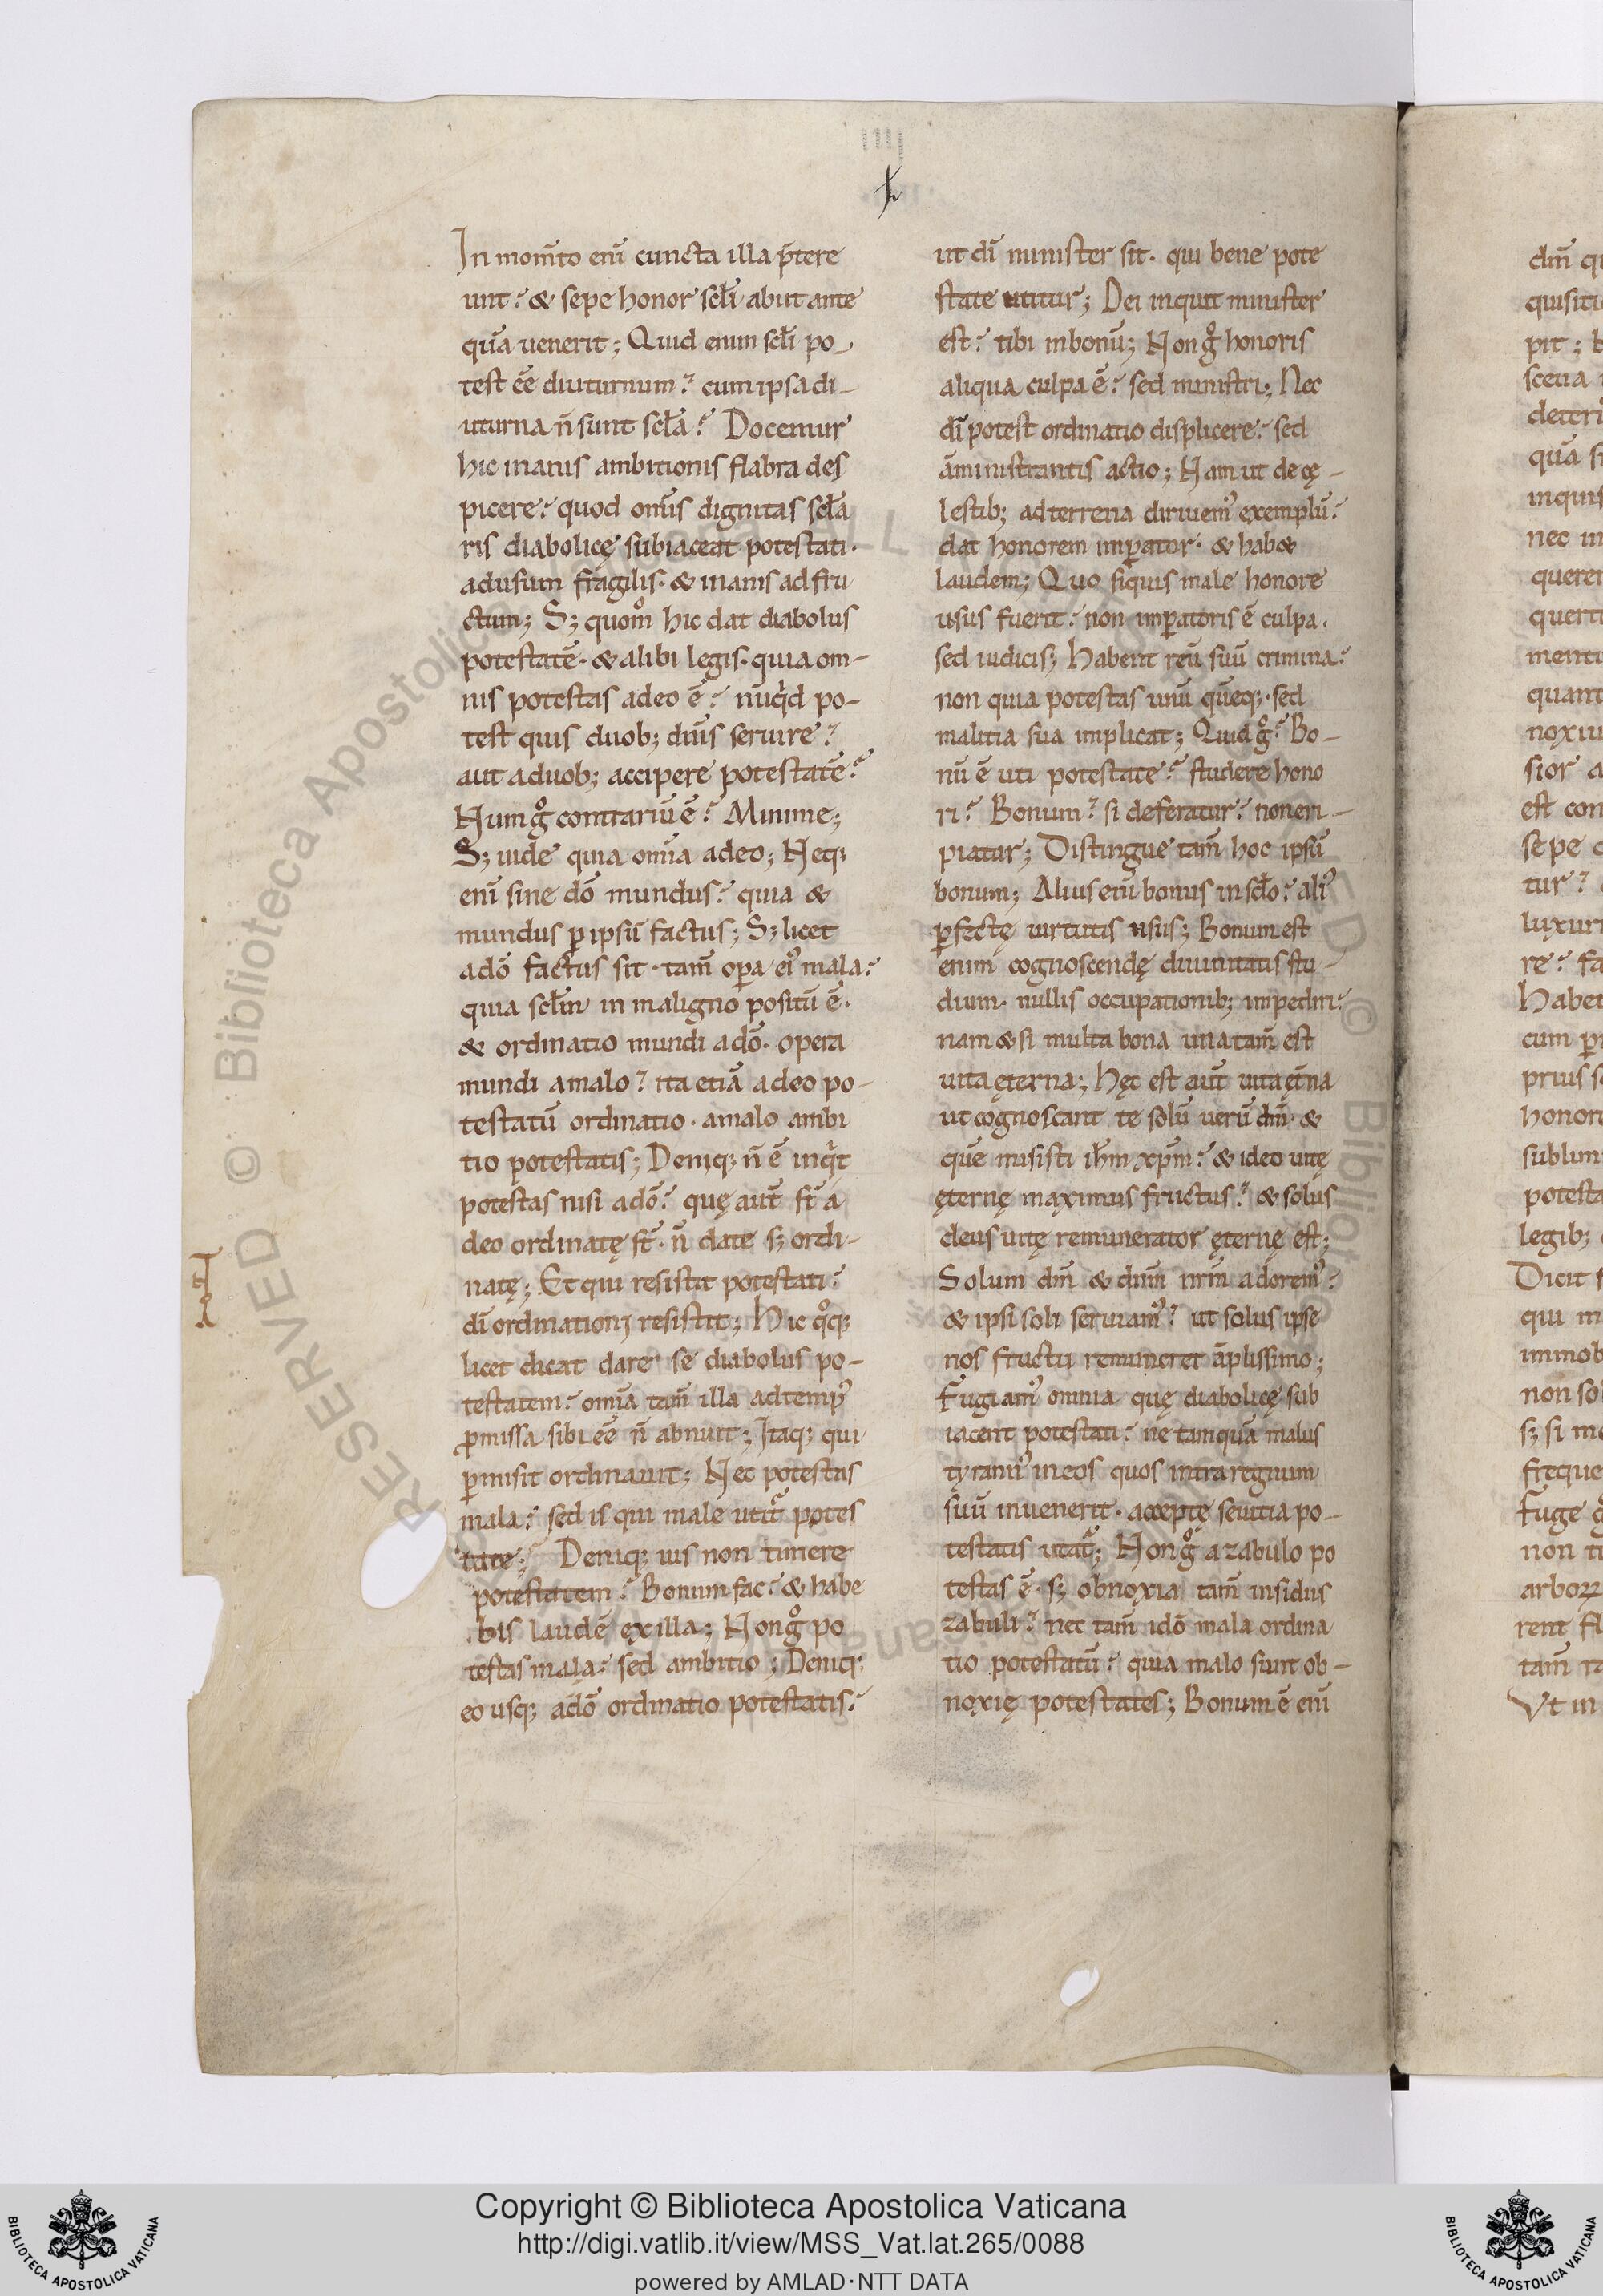 IIII
In mom̄to enī cuncta illa p̄tere
unt? & sepe honor sclī abiit ante
quā uenerit; Quid enim sclī po-
test ēē diuturnum? cum ipsa di-
uturna n̄ sunt scła? Docemur
hic inanis ambitionis flabra des
picere? quod om̄is dignitas scła
ris diabolicę subiaceat potestati·
adusum fragilis· & inanis ad fru
ctum; S; quom̊ hic dat diabolus
potestatē· & alibi legis· quia om-
nis potestas adeo ē? nūqd po-
test quis duob; dn̄is seruire?
aut aduob; accipere potestatē?
Num g̊ contrariū ē? Minime;
S; uide quia omīa adeo; Neq;
enī sine dō mundus? quia &
mundus p ipsū factus; S; licet
adō factus sit· tam̄ opa ei' mala?
quia scłm in maligno positū ē·
& ordinatio mundi adō· opera
mundi amalo? ita etiā adeo po-
testatū ordinatio· amalo ambi
tio potestatis; Deniq; n̄ ē inqt
potestas nisi adō? quę aut̄ st̄ a
deo ordinatę st̄· n̄ date s; ordi-
natę; Et qui resistit potestati?
dī ordinationi resistit; Hic q̊q;
licet dicat dare se diabolus po-
testatem? omīa tam̄ illa adtemp'
pmissa sibi ēē n̄ abnuit; Itaq; qui
pmisit ordinauit; Nec potestas
mala? sed is qui male utit potes
tate; Deniq; uis non timere
potestatem? Bonum fac? & habe
bis laudē ex illa; Non g̊ po
testas mala? sed ambitio; Deniq;
eo usq; adō ordinatio potestatis?
ut dī minister sit· qui bene pote
state utitur; Dei inquit minister
est? tibi in bonū; Non g̊ honoris
aliqua culpa ē? sed ministri; Nec
dī potest ordinatio displicere? sed
āministrantis actio; Nam ut de cę-
lestib; ad terrena diriuem' exemplū?
dat honorem impator· & hab&
laudem; Quo siquis male honore
usus fuerit? non impatoris ē culpa·
sed iudicis; Habent reū suū crimina?
non quia potestas unū quēq;· sed
malitia sua implicat; Quid g̊? Bo-
nū ē uti potestate? studere hono
ri? Bonum? si deferatur? non eri-
piatur; Distingue tam̄ hoc ipsū
bonum; Alius enī bonus in scło? ali'
pfectę uirtutis usus; Bonum est
enim cognoscendę diuinitatis stu-
dium· nullis occupationib; impediri?
nam & si multa bona una tam̄ est
uita ęterna; Hęc est aut̄ uita ęt̄na
ut cognoscant te solū uerū dm̄· &
quē misisti ihm xpm? & ideo uitę
ęternę maximus fructus? & solus
deus uitę remunerator ęternę est;
Solum dm̄ & dnm̄ nrm̄ adorem'?
& ipsi soli seruiam'? ut solus ipse
nos fructu remuneret āplissimo;
Fugiam' omnia quę diabolicę sub
iacent potestati? ne tamquā malus
tyrann' in eos quos intra regnum
suū inuenerit· acceptę seuitia po-
testatis utat; Non g̊ a zabulo po
testas ē· s; obnoxia tam̄ insidiis
zabuli? nec tam̄ idō mala ordina
tio potestatū? quia malo sunt ob-
noxię potestates; Bonum ē enī
dm̄ qu
quisiti
pit;
sceua
deteri
quā si
inquis
nec in
querer
querit
menti
quant
noxiu
sior a
est con
sepe
tur?
luxuri
re? fa
Habet
cum p
prius s
honor
sublim
potesta
legib;
Dicit
qui m
immob
non so
s; si m
freque
Fuge g̊
non ti
arbor
rent fl
tam̄ ra
Ut in
© Biblioteca Apostolica
RESERVED
Copyright © Biblioteca Apostolica Vaticana
http://digi.vatlib.it/view/MSS_Vat.lat.265/0088
powered by AMLAD·NTT DATA
BIBLIOTECA APOSTOLICA VATICANA
BIBLIOTECA APOSTOLICA VATICANA